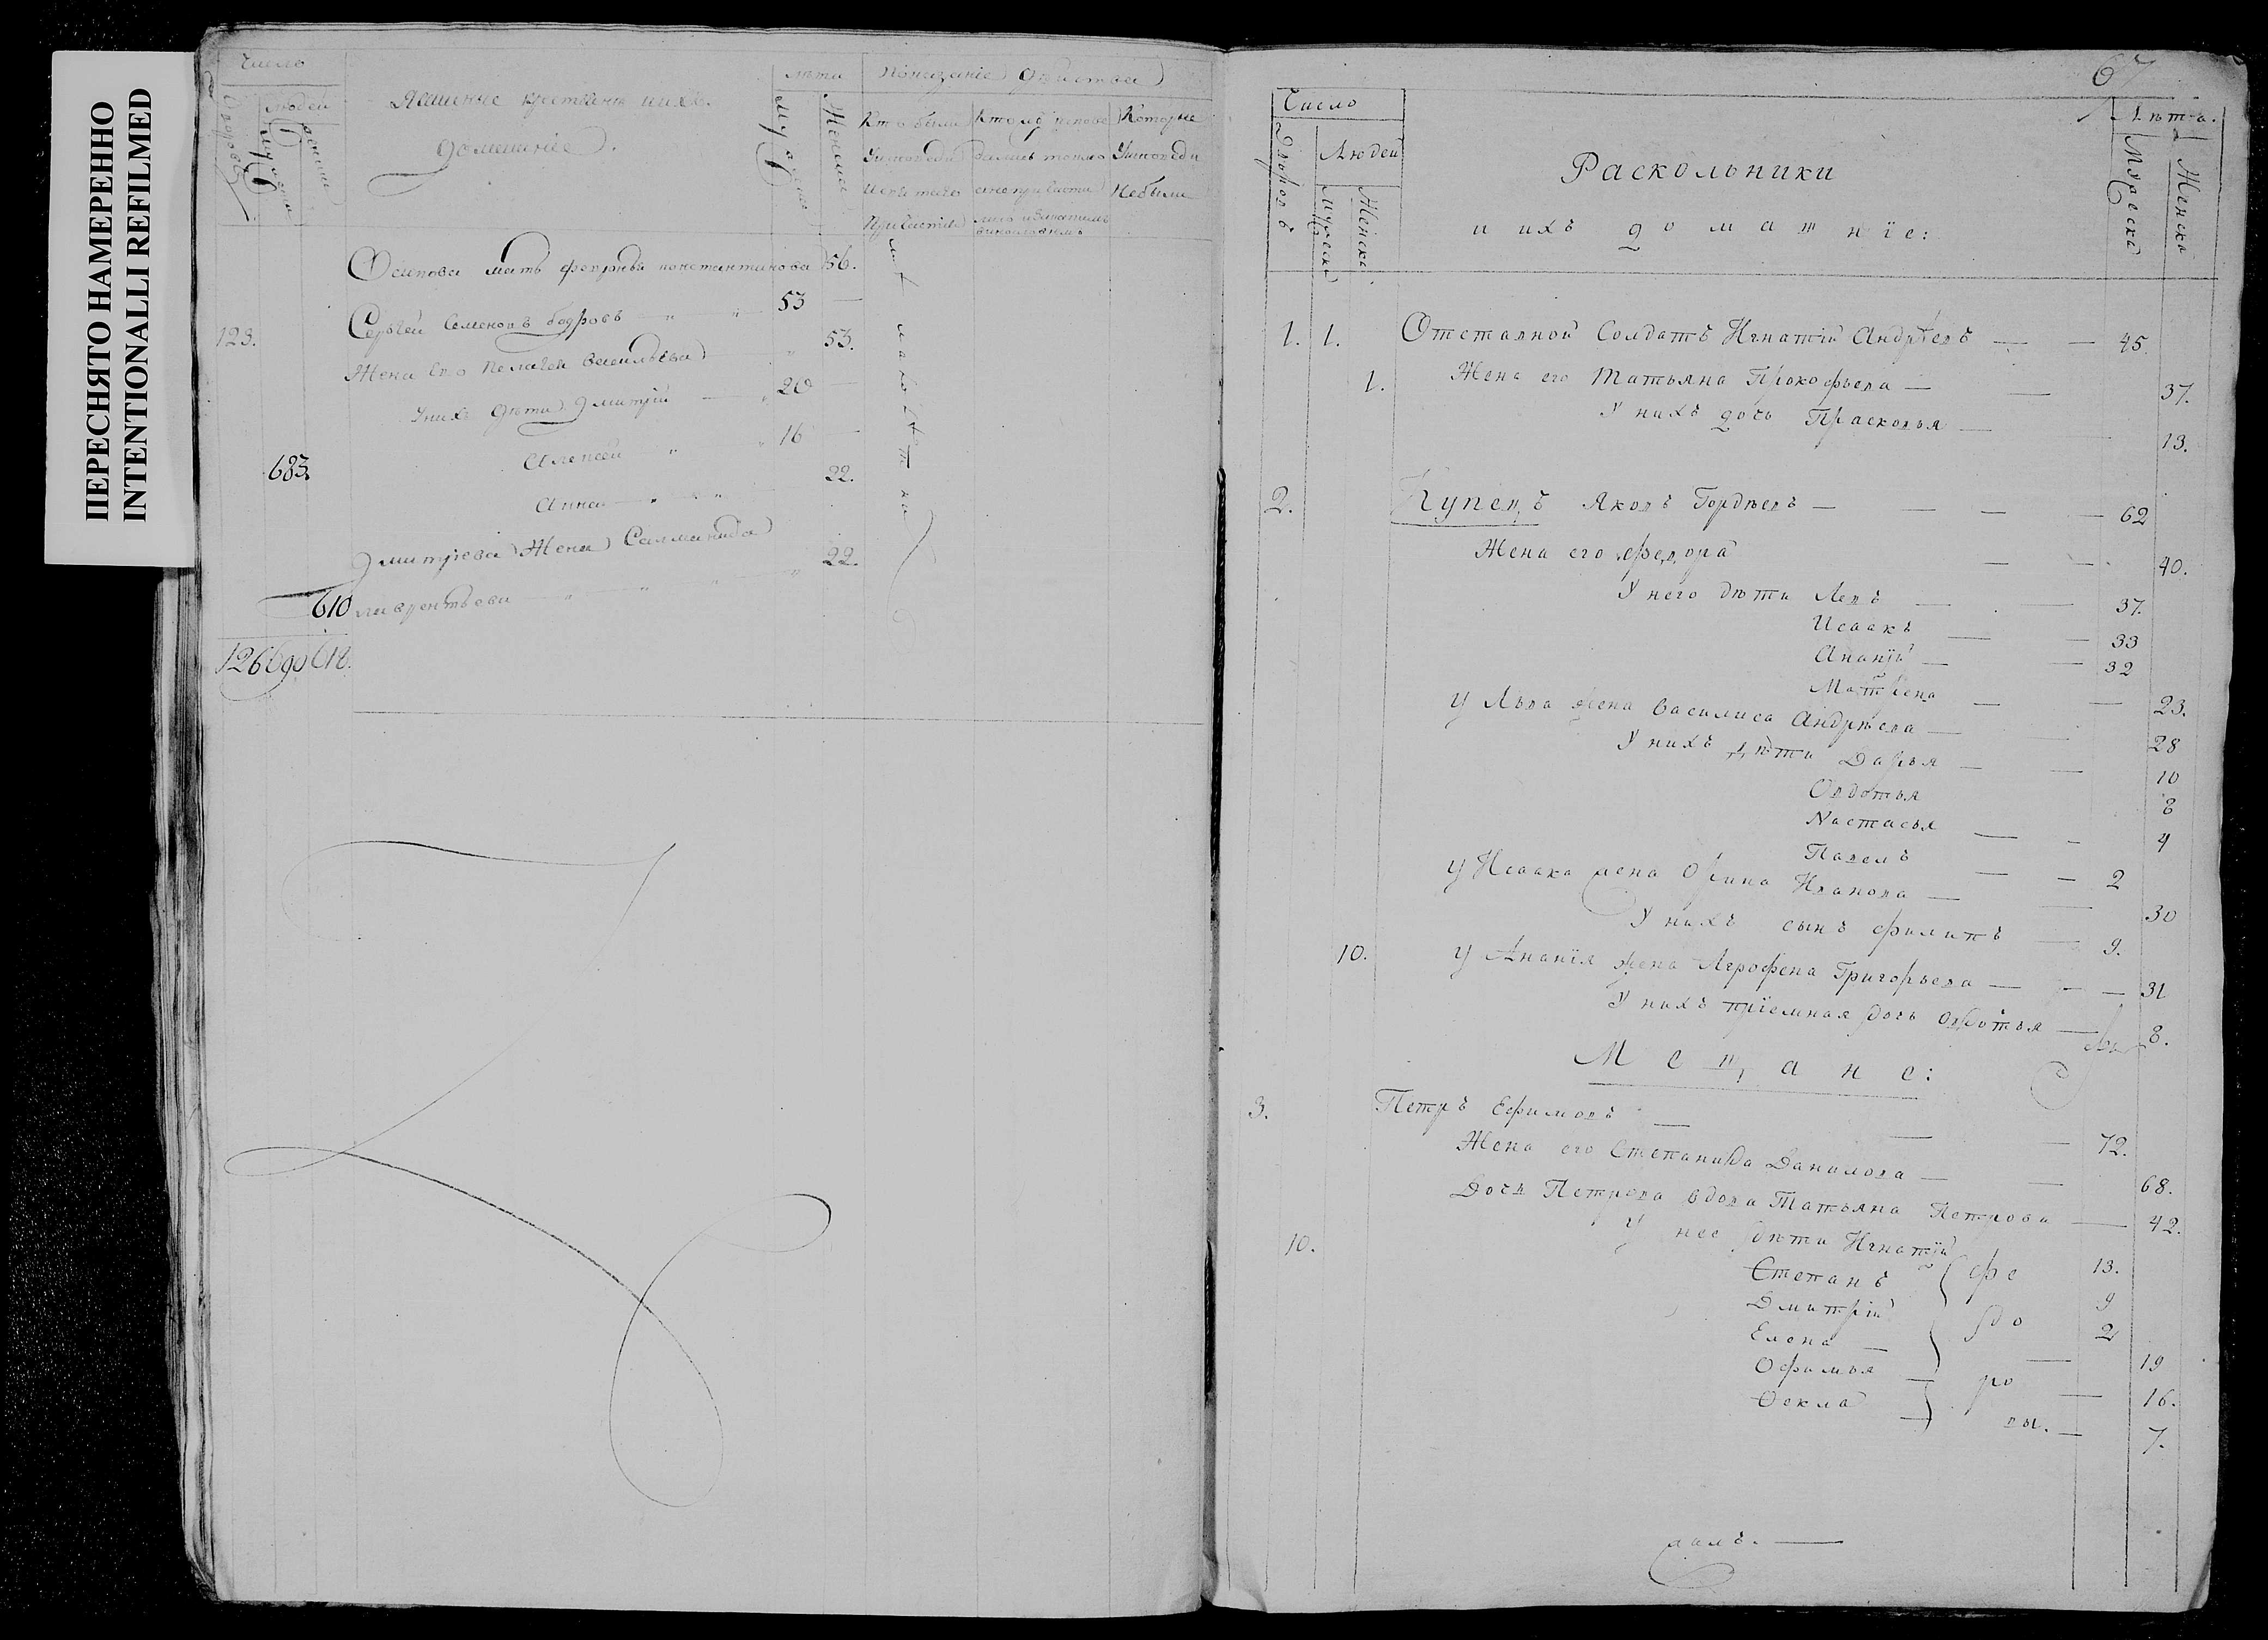 ПЕРЕСНЯТО НАМЕРЕННО
INTENTIONALLI REFILMED
Число
людей
Дворовъ
Мужеска
Женска
Ямшение крестьяне и ихъ
домашние.
лѣта
Мужеска
Женска
Показание действа
Кто были Уисповеди и святаго Причастия
Которые Уисповеди Небыли
Осипова мать константинова 56.
123. Сергѣй Семеновъ бодровъ 53
Жена Его Пелагея васильева 53.
Унихъ дѣти Дмитрий 20
683. Алексей 16
Анна 22.
Дмитриева Жена Саломанида
610 лаврентьева 22.
126 690 618.
67
Число
Дворовъ
Людей
Мужеска
Женска
Раскольники
и ихъ домашнïе:
Лѣта.
Мужеска
Женска
1. 1. Отставной Солдатъ Игнатïй Андрѣевъ 45.
1. Жена его Татьяна Прокофьева 37.
У нихъ дочь Прасковья 13.
2. Купецъ Яковъ Гордѣевъ 62
Жена его федора 40.
У него дѣти Левъ 37.
Исаакъ 33
Ананïй 32
Матвена 23.
У Льва жена Василиса Андрѣева 28
У нихъ дѣти Дарья 10
Овдотья 8
Настасья 4
Павелъ 2
У Исаака жена Орина Иванова 30
У нихъ сынъ филипъ 9.
10. У Ананïя жена Агрофена Григорьева 31
У нихъ прïемная дочь Овдотья 8.
Мещане:
3. Петръ Ефимовъ 72.
Жена его Степанида Данилова 68.
Дочь Петрова вдова Татьяна Петрова 42.
10. У нее дѣти Игнатïй 13.
Степанъ 9
Дмитрïй 2
Елена 19
Офимья 16.
Ѳекла 7.
фе
до
ро
вы.